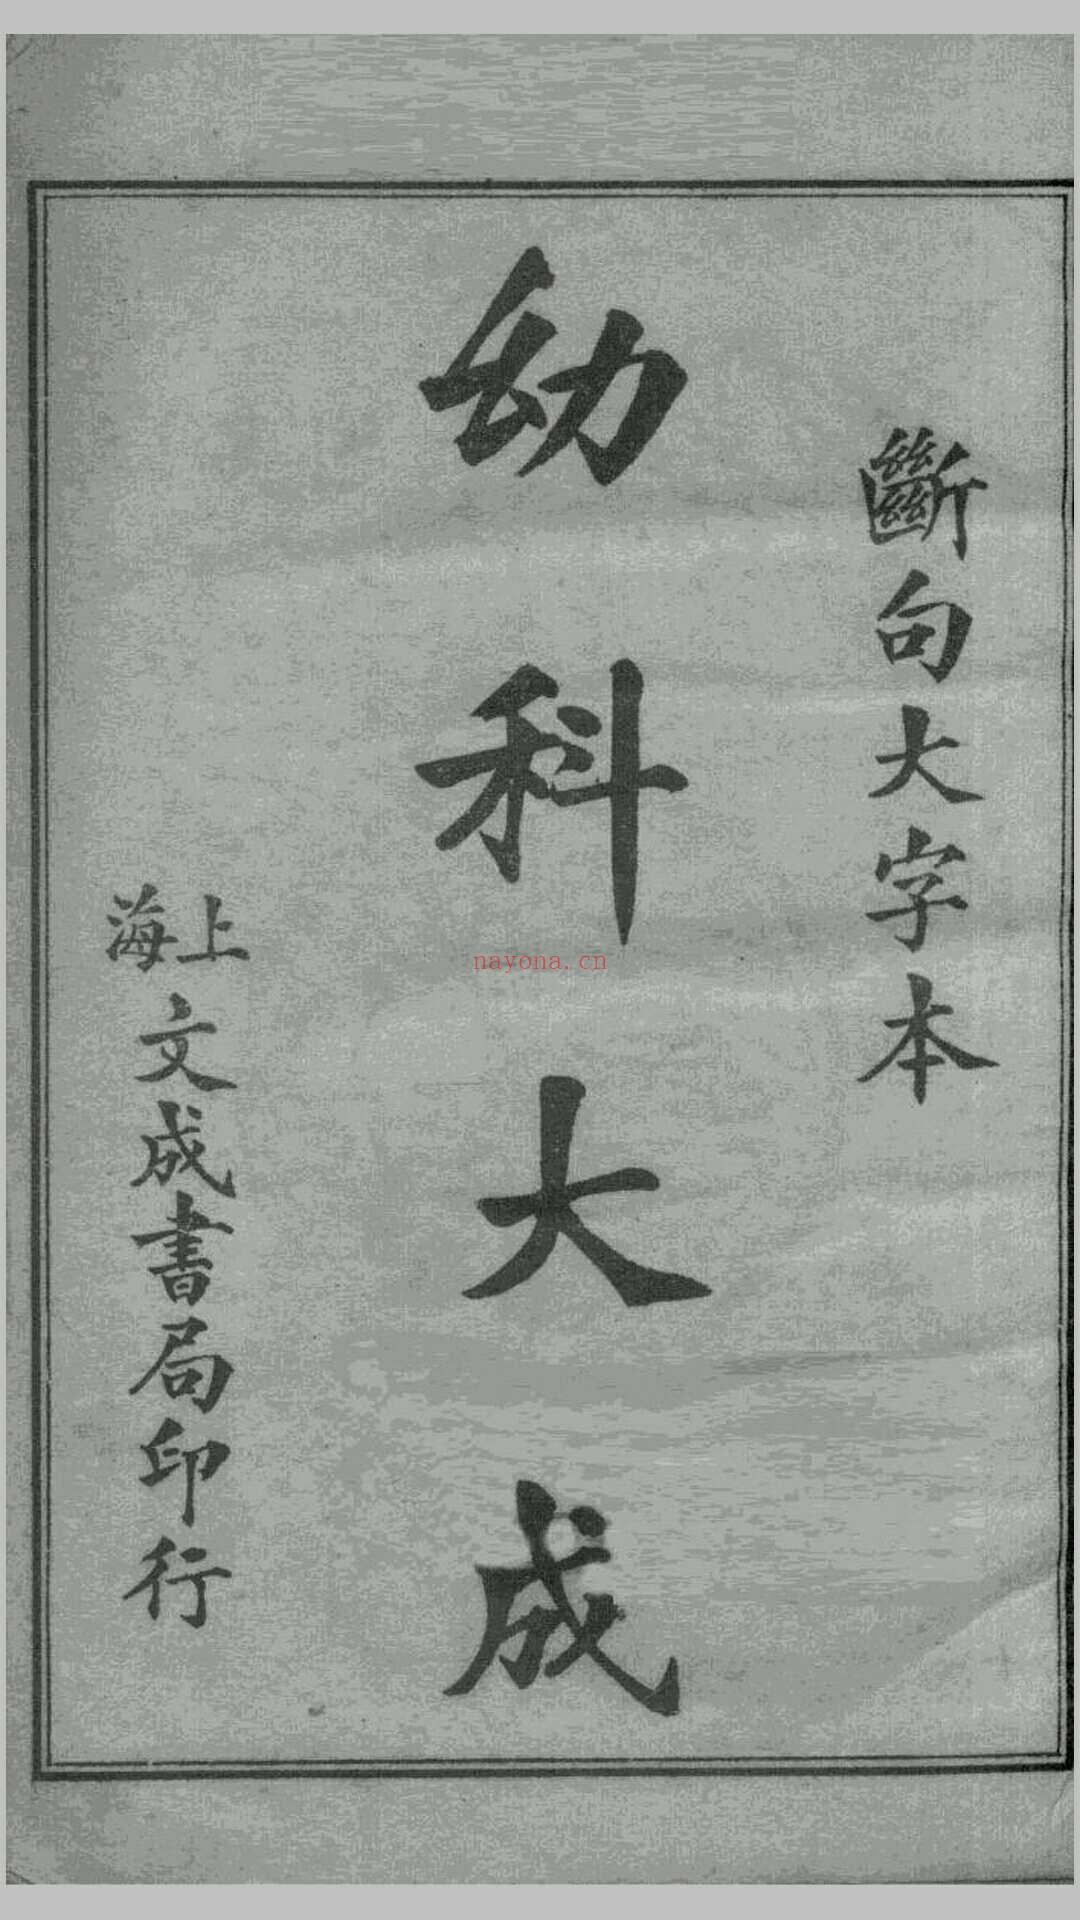 斷句大字本
幼科大成
上海
文成書局印行
nayona.cn